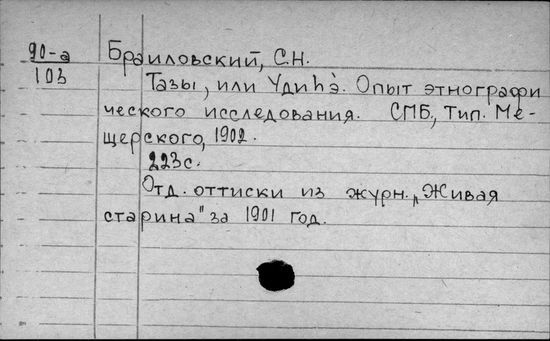 90-а Браиловский, С.Н.
103 Тазы, или Удиhэ̀. Опыт этнографи
ческого исследования. СПБ., Тип. Ме-
щерского, 1902.
223с.
Отд. оттиски из журн. „Живая
старина" за 1901 год.